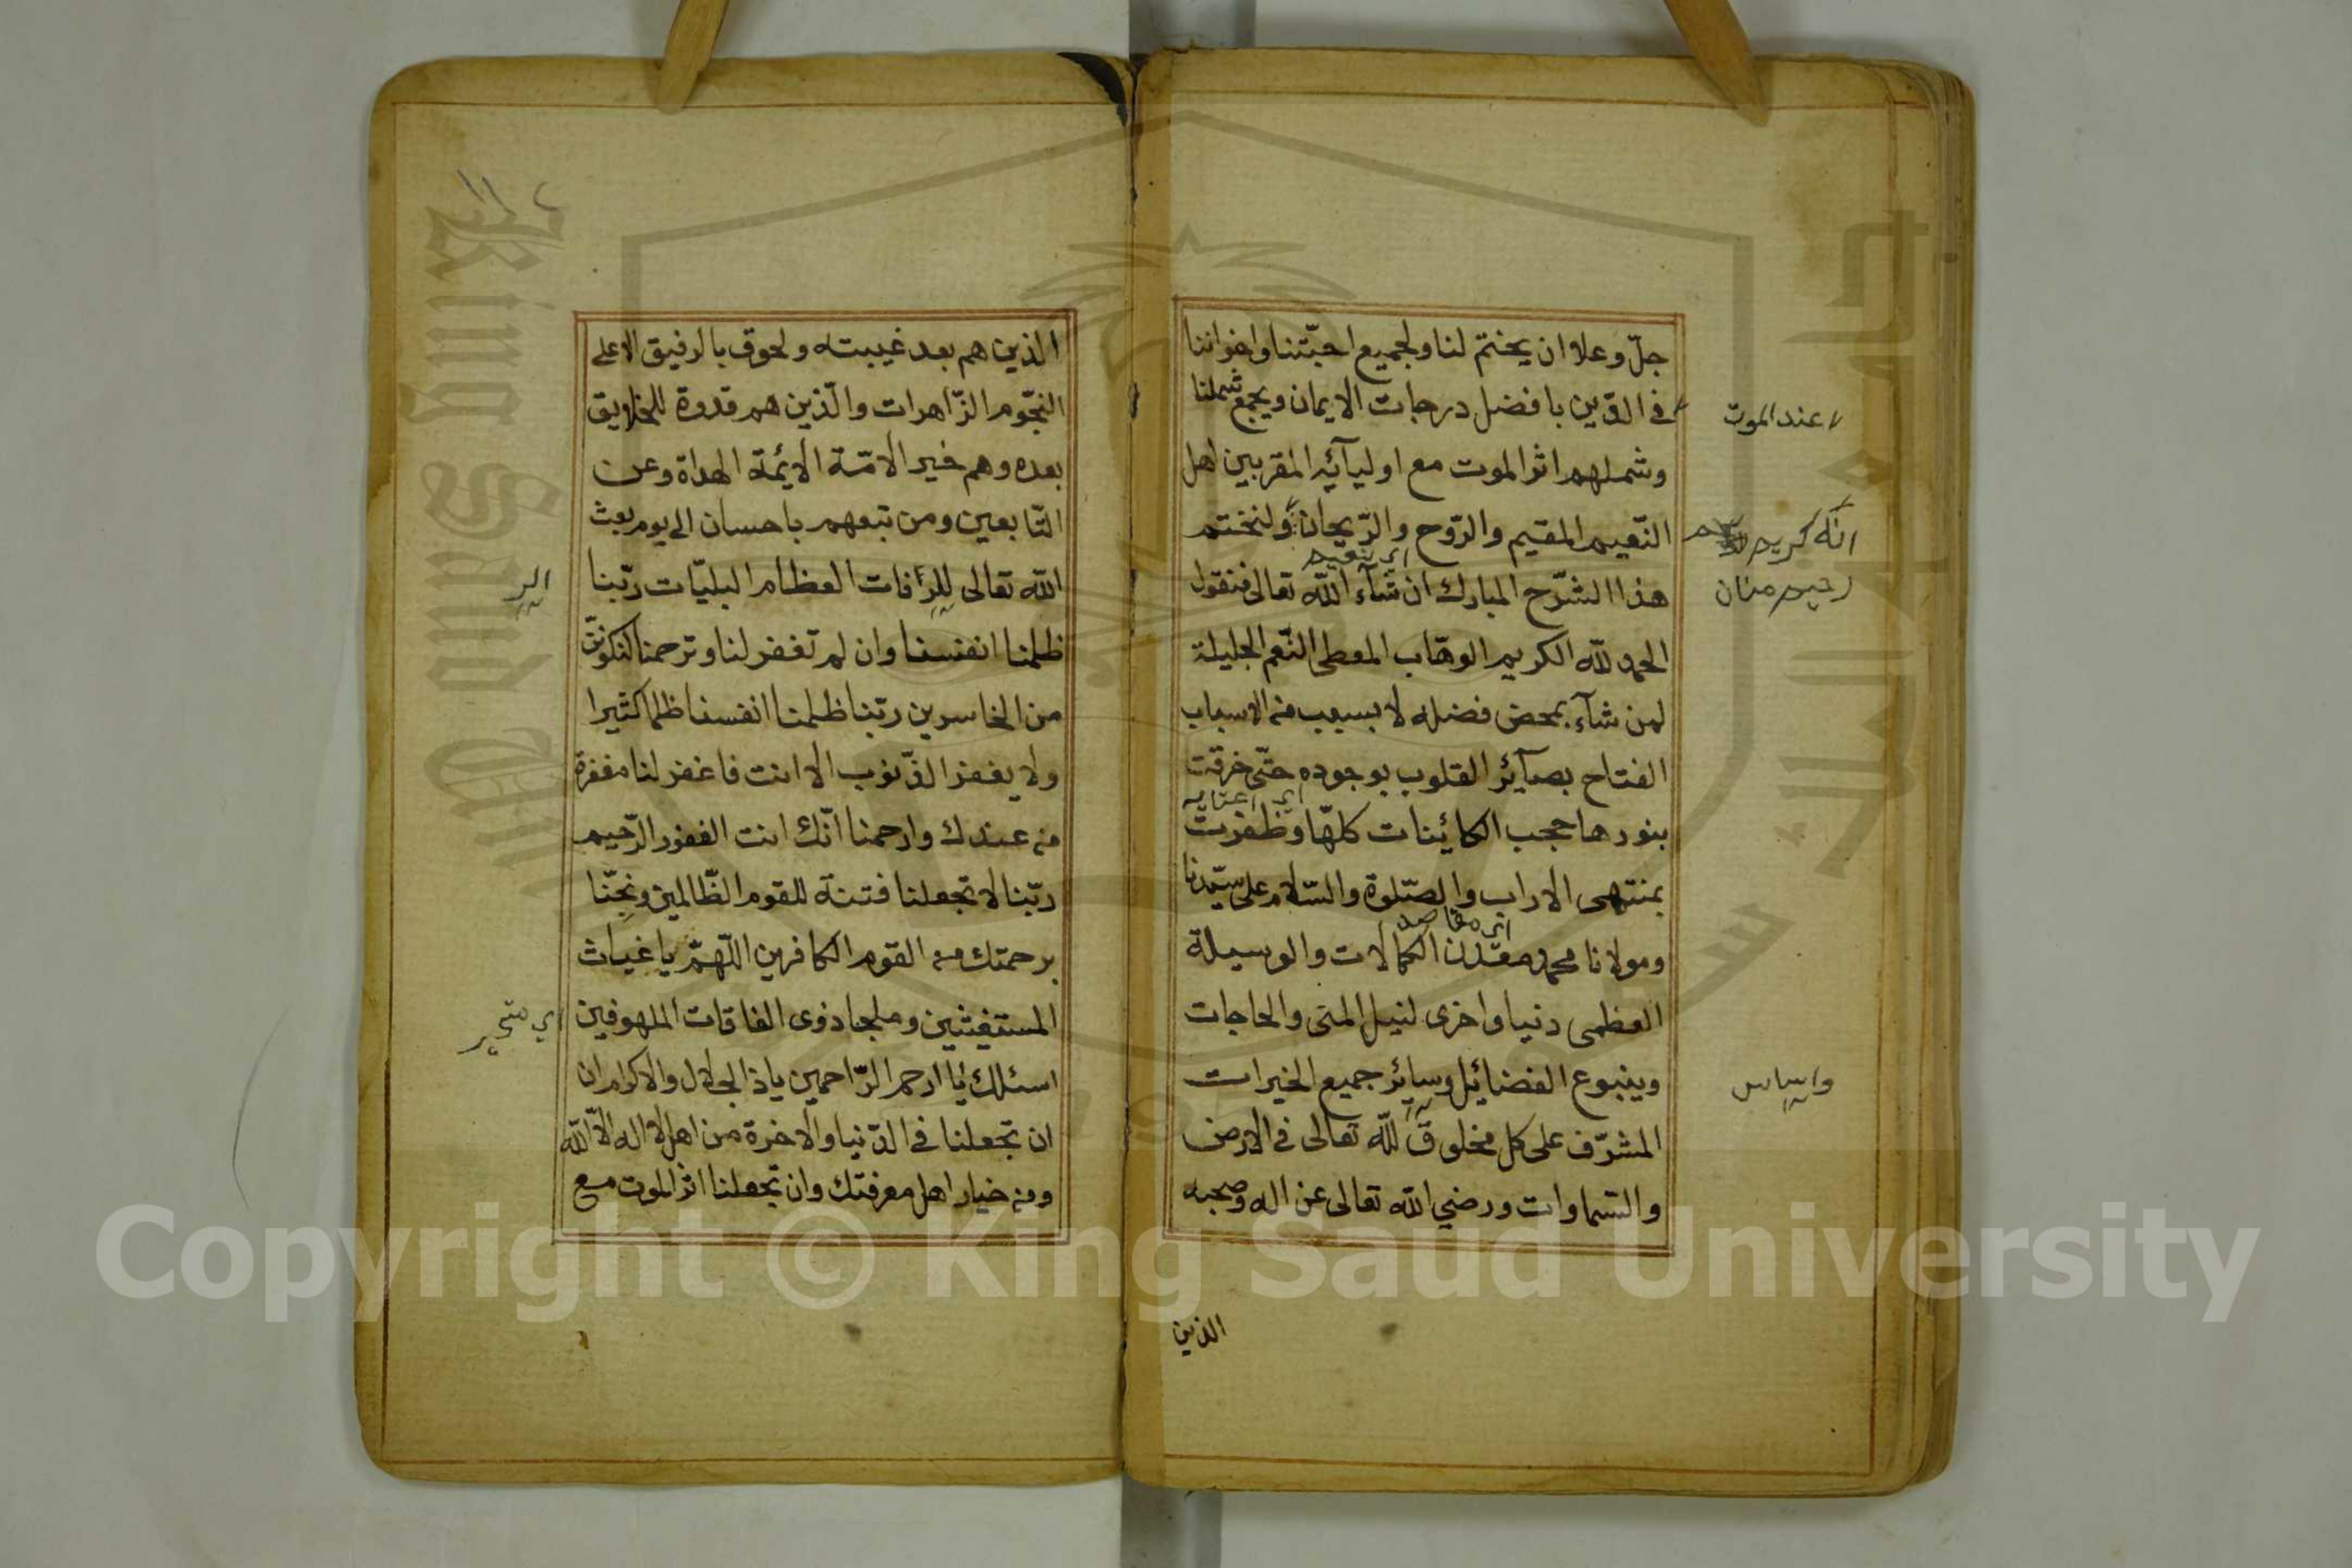 جلّ وعلا ان يختم لنا ولجميع احبّتنا واخواننا
في الدّين بافضل درجات الايمان ويجمع شملنا
عند الموت
وشملهم اثر الموت مع اوليآئه المقربين اهل
النّعيم المقيم والرّوح والرّيحان ولنختتم
انّه كريم
رحيم منان
هذا الشّرح المبارك ان شآء اللّه تعالى فنقول
الحمد للّه الكريم الوهّاب المعطى النّعم الجليلة
لمن شآء بمحض فضله لا بسبب من الاسباب
الفتاح بصآئر القلوب بوجوده حتّى خرقت
بنورها حجب الكائينات كلّها وظفرت
بمنتهى الاراب والصّلوة والسّلام على سيّدنا
اى مقاصد
ومولانا محمد معدن الكمالات والوسيلة
العظمى دنيا واخرى لنيل المنى والحاجات
وينبوع الفضائيل وسائر جميع الخيرات
المشرّف على كل مخلوق للّه تعالى في الارض
والسّماوات ورضي اللّه تعالى عن اله وصحبه
الذين
الذين هم بعد غيبته ولحوق بالرفيق الاعلى
النجّوم الزّاهرات والّذين هم قدوة للخلايق
بعده وهم خير الامّة الأئمة الهداة وعن
التّابعين ومن تبعهم باحسان الى يوم بعث
اللّه تعالى للرّفات العظام البليّات ربّنا
ظلمنا انفسنا وان لم تغفر لنا وترحمنا لنكوننّ
من الخاسرين ربّنا ظلمنا انفسنا ظلما كثيرا
ولا يغفر الذّنوب الا انت فاغفر لنا مغفرة
من عندك وارحمنا انّك انت الغفور الرّحيم
ربّنا لا تجعلنا فتنة للقوم الظّالمين ونجّنا
برحمتك من القوم الكافرين اللّهمّ يا غياث
المستغيثين وملجا ذوى الفاقات الملهوفين
اى متحير
اسئلك يا ارحم الرّاحمين ياذا الجلال والاكرام ان
ان تجعلنا في الدّنيا والاخرة من اهل لا اله الّا اللّه
ومن خيار اهل معرفتك وان تجعلنا اثر الموت مع
King Saud University
Copyright © King Saud University